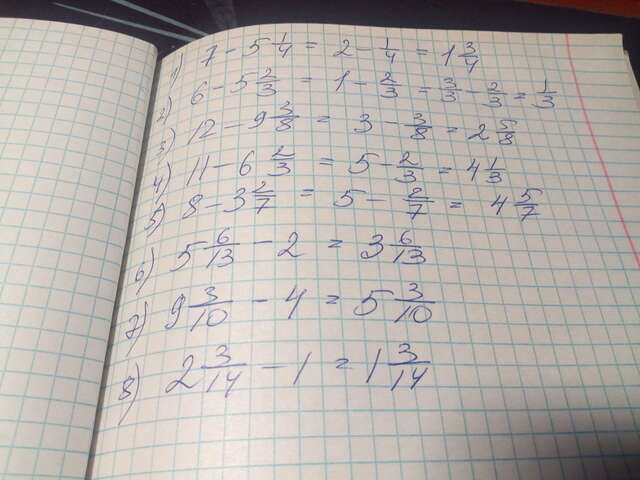 1) 7 - 5 1/4 = 2 - 1/4 = 1 3/4
2) 6 - 5 2/3 = 1 - 2/3 = 3/3 - 2/3 = 1/3
3) 12 - 9 3/8 = 3 - 3/8 = 2 5/8
4) 11 - 6 2/3 = 5 - 2/3 = 4 1/3
5) 8 - 3 2/7 = 5 - 2/7 = 4 5/7
6) 5 6/13 - 2 = 3 6/13
7) 9 3/10 - 4 = 5 3/10
8) 2 3/14 - 1 = 1 3/14